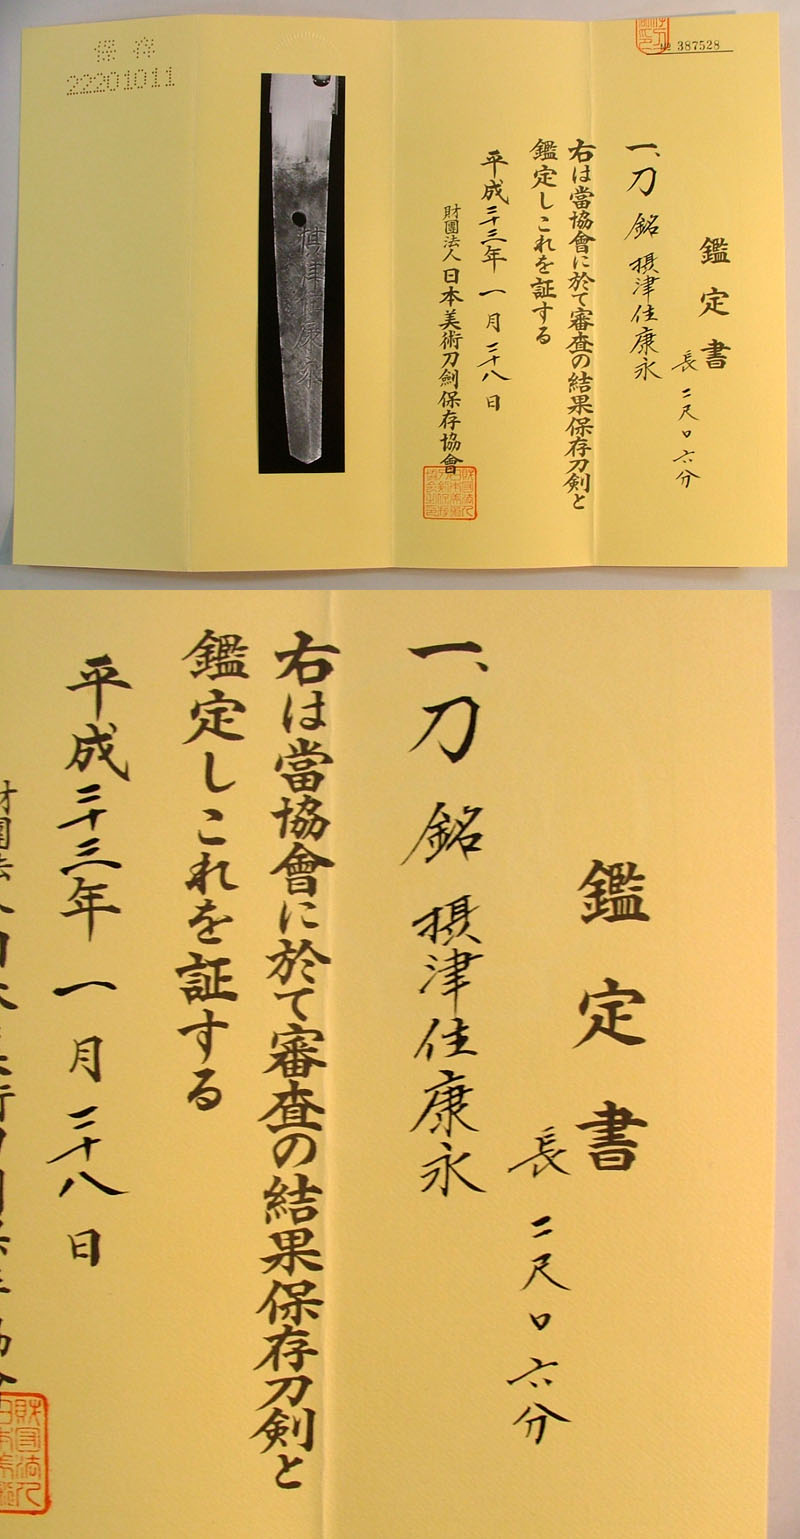 保存
22201011
№ 387528
鑑定書
長 二尺口六分
一、刀 銘 摂津住康永
右は當協會に於て審査の結果保存刀剣と
鑑定しこれを証する
平成二十三年 一月 二十八日
財團法人 日本美術刀劍保存協會
摂津住康永
鑑定書
長 二尺口六分
一、刀 銘 摂津住康永
右は當協會に於て審査の結果保存刀剣と
鑑定しこれを証する
平成二十三年 一月 二十八日